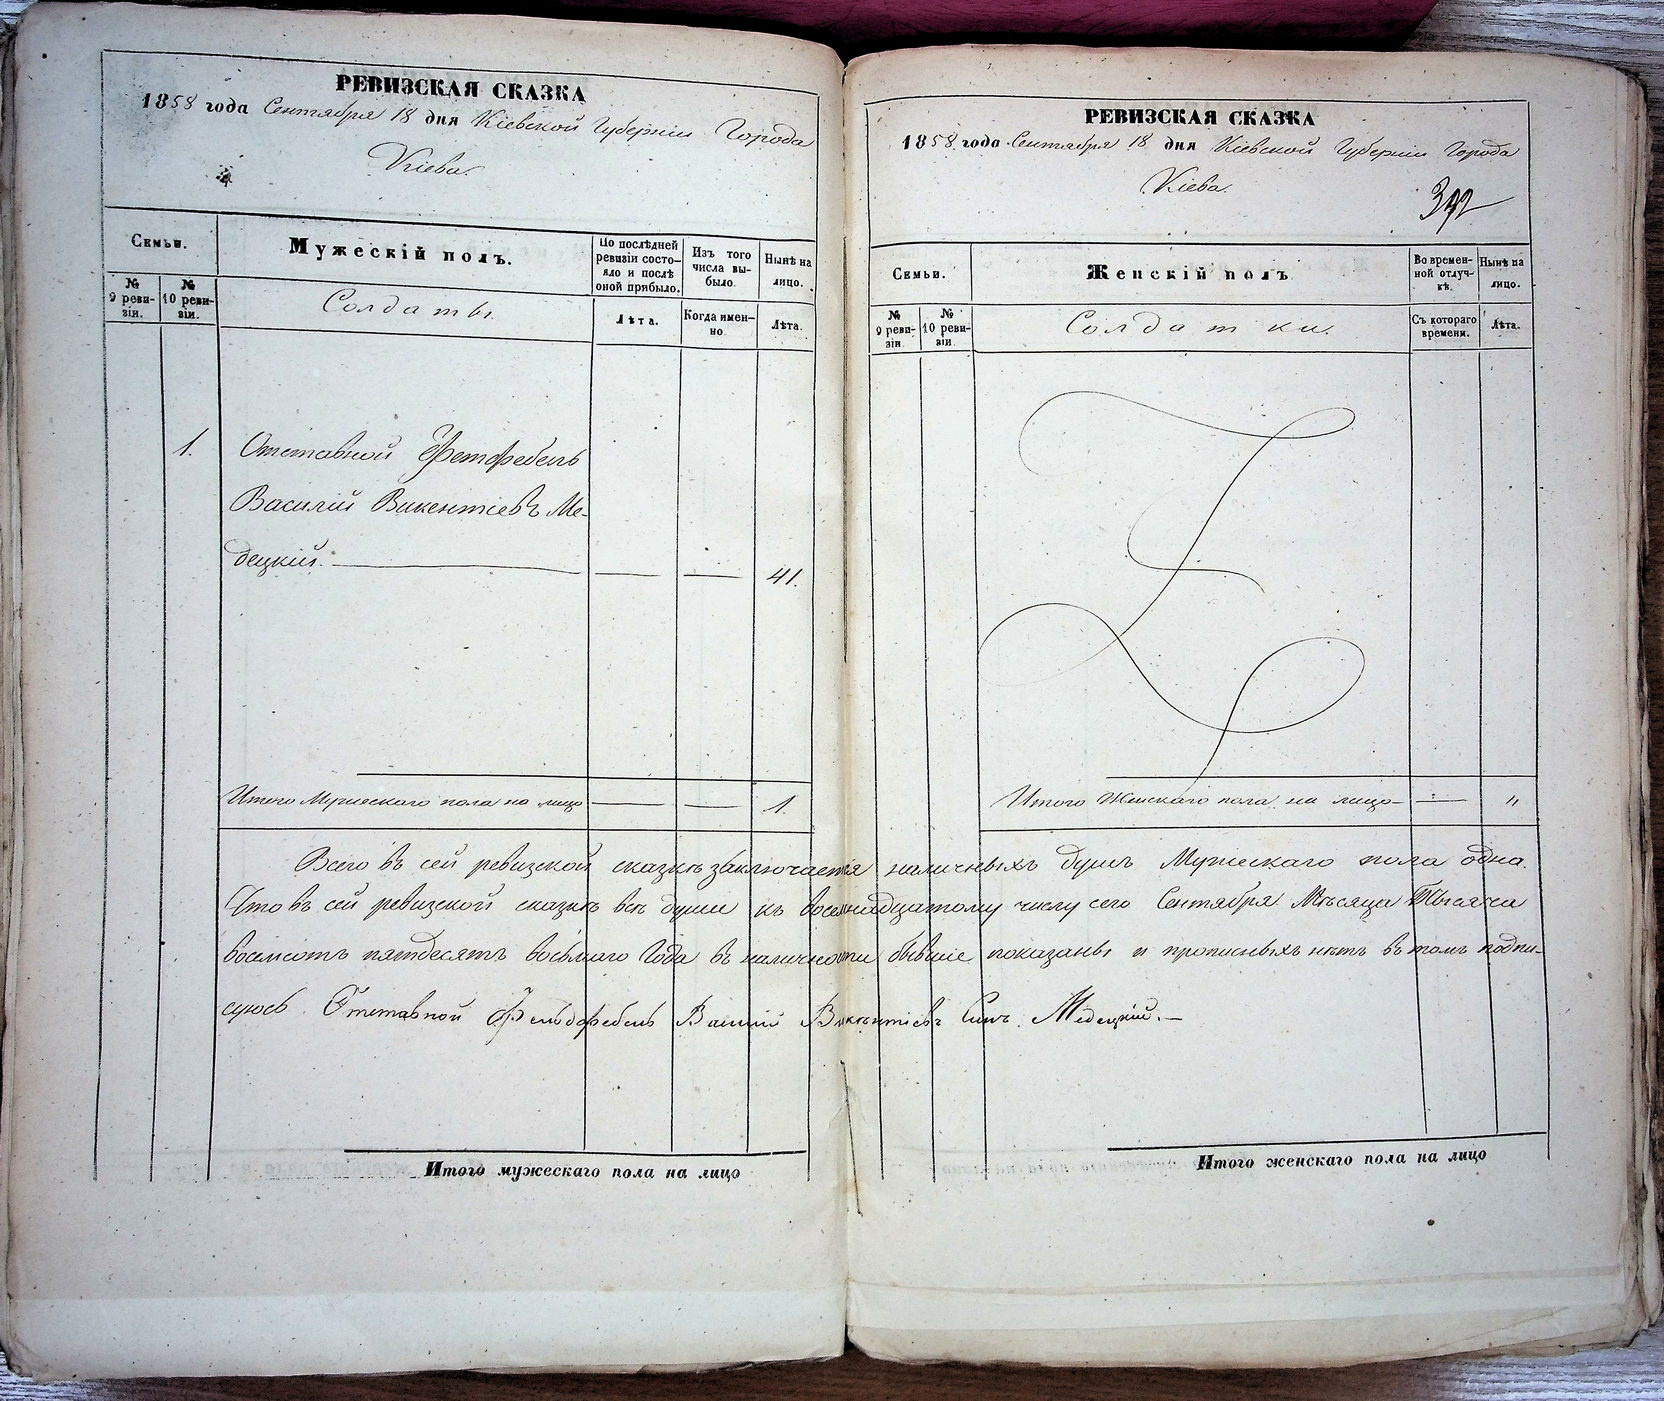 РЕВИЗСКАЯ СКАЗКА
1858 года Сентября 18 дня Кіевской Губерніи Города
Кіева.
Семьи.
Мужескій полъ.
По послѣдней ревизіи состояло и послѣ оной прибыло.
Изъ того числа выбыло.
Нынѣ на лицо.
№ 9 ревизіи.
№ 10 ревизіи.
Солдаты.
Лѣта.
Когда именно.
Лѣта.
1. Отставной Фетфебель
Василій Викентіевъ Ме-
децкій. 41.
Итого Мужескаго пола на лицо 1.
РЕВИЗСКАЯ СКАЗКА
1858 года Сентября 18 дня Кіевской Губерніи Города
Кіева.
Семьи.
Женскій полъ.
Во временной отлучкѣ.
Нынѣ на лицо.
№ 9 ревизіи
№ 10 ревизіи
Солдатки.
Съ котораго времени.
Лѣта.
Итого Женскаго пола на лицо „
Всего въ сей ревизской сказкѣ заключается наличныхъ душъ Мужескаго пола одна.
Что въ сей ревизской сказкѣ всѣ души къ восемнадцатому числу сего Сентября Мѣсяца Тысяча
восемсотъ пятдесятъ восьмаго Года въ наличности бывшіе показаны и прописныхъ нѣтъ въ томъ подпи-
суюсь Отставной Фельдфебель Василій Викентіевъ Синъ Медецкій.
Итого мужескаго пола на лицо
Итого женскаго пола на лицо